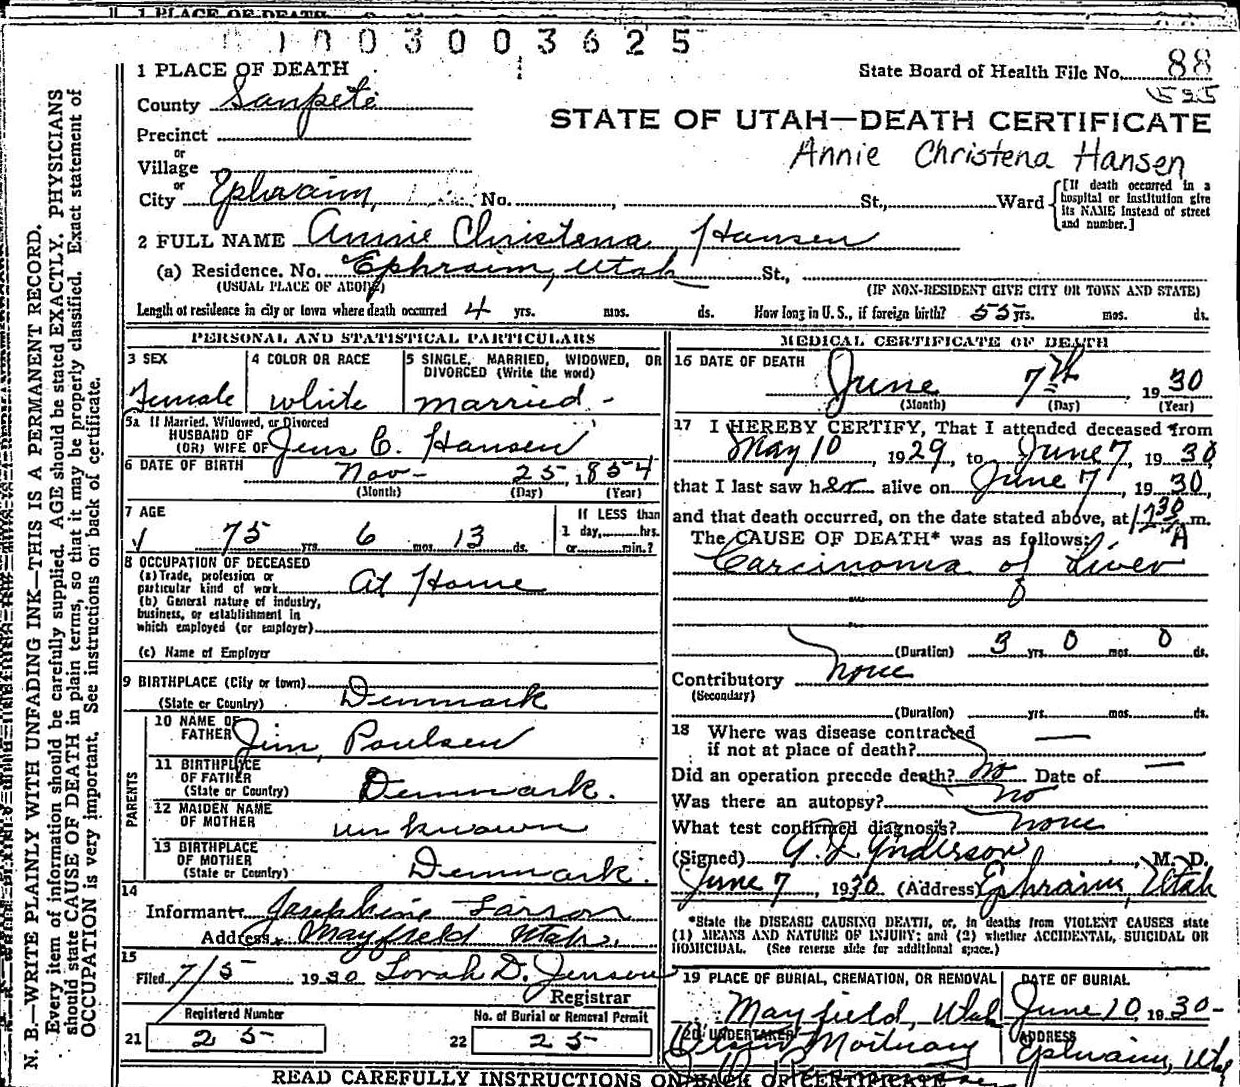 1 PLACE OF DEATH
1003003625
1 PLACE OF DEATH
State Board of Health File No. 88
County Sanpete
525
STATE OF UTAH—DEATH CERTIFICATE
Precinct
Annie Christena Hansen
or
Village
or
City Ephraim, No. , St., Ward
[If death occurred in a hospital or institution give its NAME instead of street and number.]
2 FULL NAME Annie Christena Hansen
(a) Residence. No. Ephraim, Utah St.,
(USUAL PLACE OF ABODE) (IF NON-RESIDENT GIVE CITY OR TOWN AND STATE)
Length of residence in city or town where death occurred 4 yrs. mos. ds. How long in U.S., if foreign birth? 55 yrs. mos. ds.
PERSONAL AND STATISTICAL PARTICULARS
3 SEX
Female
4 COLOR OR RACE
white
5 SINGLE, MARRIED, WIDOWED, OR
DIVORCED (Write the word)
married -
5a If Married, Widowed, or Divorced
HUSBAND OF
(OR) WIFE OF Jens C. Hansen
6 DATE OF BIRTH Nov - 25, 1854
(Month) (Day) (Year)
7 AGE
75 yrs. 6 mos. 13 ds.
If LESS than
1 day, hrs.
or min.?
8 OCCUPATION OF DECEASED
(a) Trade, profession or
particular kind of work At Home
(b) General nature of industry,
business, or establishment in
which employed (or employer)
(c) Name of Employer
9 BIRTHPLACE (City or town)
(State or Country) Denmark
PARENTS
10 NAME OF
FATHER Jim Poulsen
11 BIRTHPLACE
OF FATHER
(State or Country) Denmark.
12 MAIDEN NAME
OF MOTHER unknown
13 BIRTHPLACE
OF MOTHER
(State or Country) Denmark.
14
Informant Josephine Larson
Address Mayfield Utah.
15
Filed 7/5 1930 Lorah D. Jensen
Registrar
Registered Number No. of Burial or Removal Permit
21 25 22 25
MEDICAL CERTIFICATE OF DEATH
16 DATE OF DEATH
June 7th, 1930
(Month) (Day) (Year)
17 I HEREBY CERTIFY, That I attended deceased from
May 10, 1929, to June 7, 1930,
that I last saw her alive on June 7, 1930,
and that death occurred, on the date stated above, at 1230 m.
A
The CAUSE OF DEATH* was as follows:
Carcinoma of Liver
(Duration) 3 yrs. 0 mos. 0 ds.
Contributory none
(Secondary)
(Duration) yrs. mos. ds.
18 Where was disease contracted
if not at place of death?
Did an operation precede death? No Date of
Was there an autopsy? no
What test confirmed diagnosis? none
(Signed) Anderson, M. D.
June 7, 1930 (Address) Ephraim, Utah
*State the DISEASE CAUSING DEATH, or, in deaths from VIOLENT CAUSES state
(1) MEANS AND NATURE OF INJURY; and (2) whether ACCIDENTAL, SUICIDAL OR
HOMICIDAL. (See reverse side for additional space.)
19 PLACE OF BURIAL, CREMATION, OR REMOVAL
Mayfield, Utah
DATE OF BURIAL
June 10, 1930-
20 UNDERTAKER
Mortuary
ADDRESS
Ephraim, Utah
READ CAREFULLY INSTRUCTIONS ON BACK OF CERTIFICATE
N. B.—WRITE PLAINLY WITH UNFADING INK—THIS IS A PERMANENT RECORD.
Every item of information should be carefully supplied. AGE should be stated EXACTLY. PHYSICIANS
should state CAUSE OF DEATH in plain terms, so that it may be properly classified. Exact statement of
OCCUPATION is very important. See instructions on back of certificate.